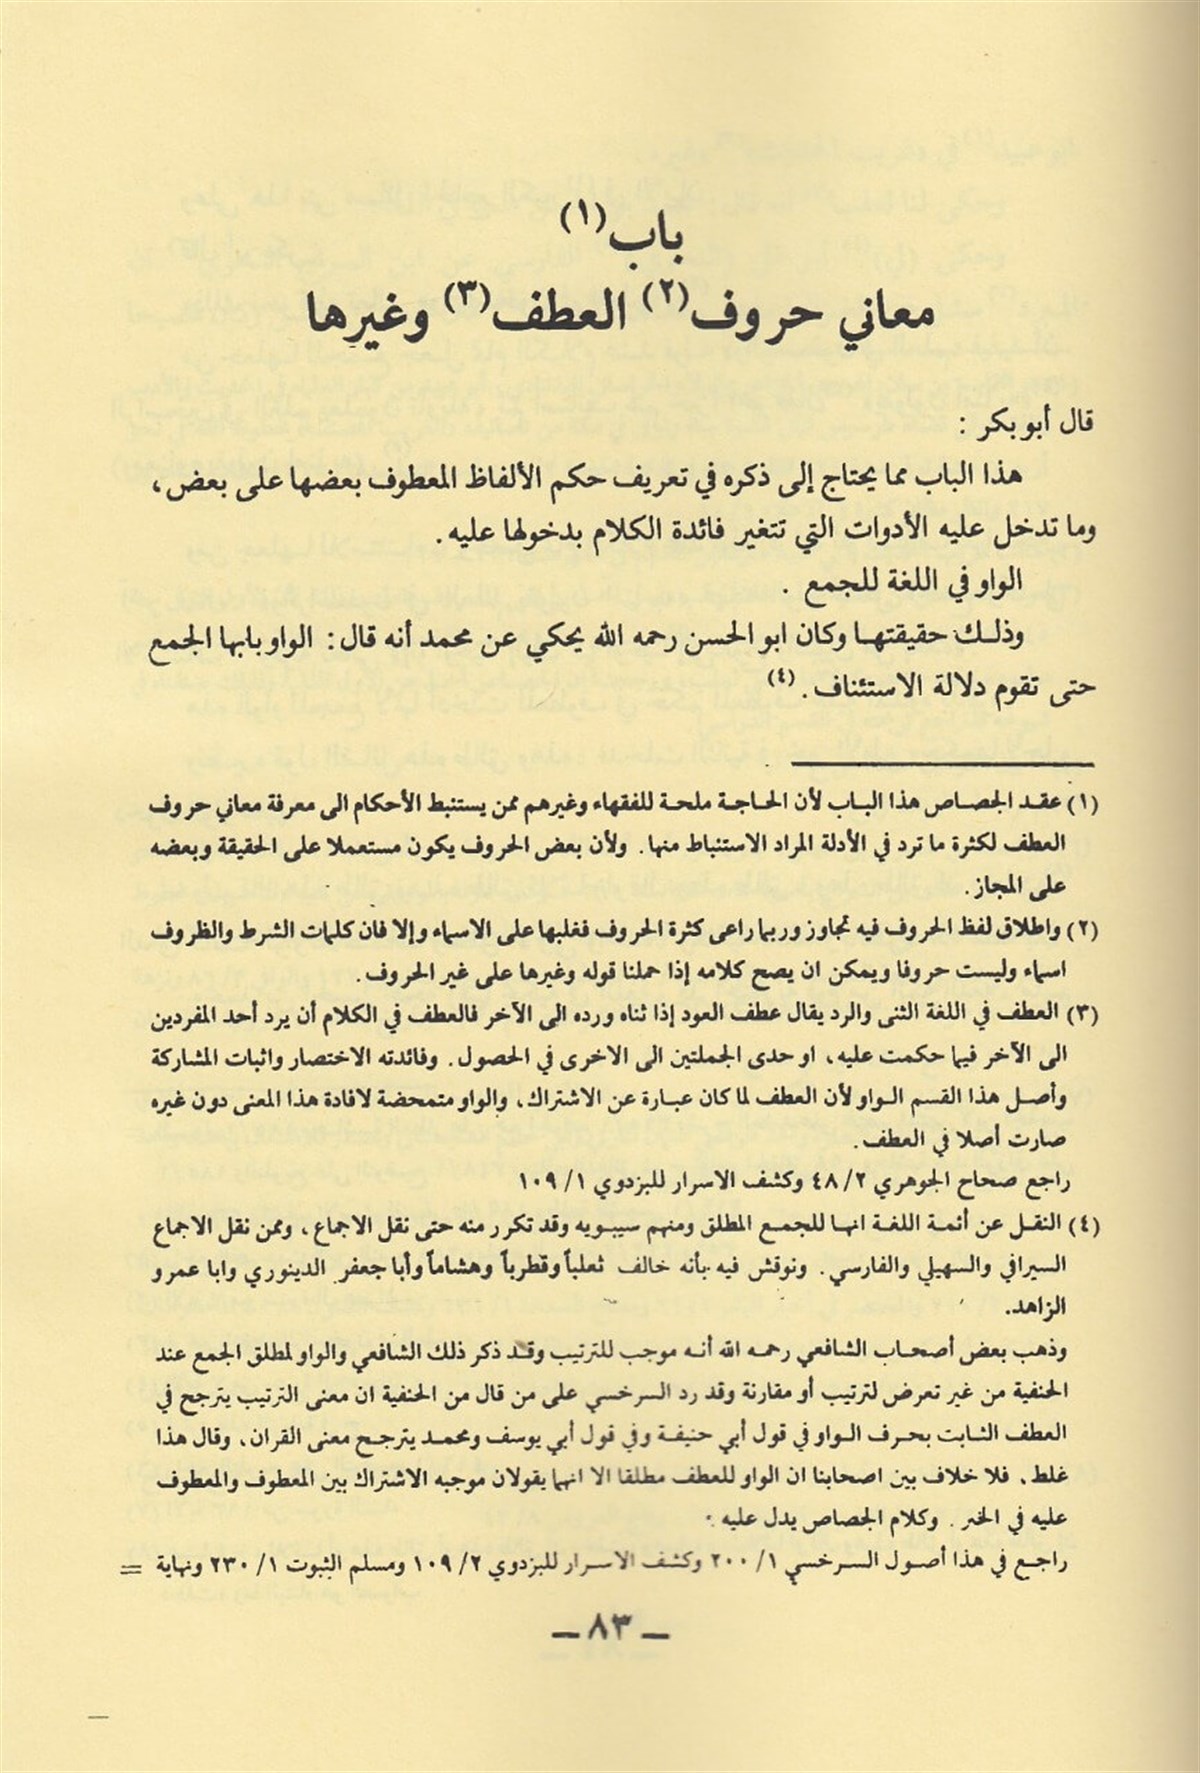 باب(١)
معاني حروف(٢) العطف(٣) وغيرها
قال أبو بكر :
هذا الباب مما يحتاج إلى ذكره في تعريف حكم الألفاظ المعطوف بعضها على بعض،
وما تدخل عليه الأدوات التي تتغير فائدة الكلام بدخولها عليه.
الواو في اللغة للجمع .
وذلك حقيقتها وكان ابو الحسن رحمه الله يحكي عن محمد أنه قال: الواو بابها الجمع
حتى تقوم دلالة الاستئناف.(٤)
(١) عقد الجصاص هذا الباب لأن الحاجة ملحة للفقهاء وغيرهم ممن يستنبط الأحكام الى معرفة معاني حروف
العطف لكثرة ما ترد في الأدلة المراد الاستنباط منها. ولأن بعض الحروف يكون مستعملا على الحقيقة وبعضه
على المجاز.
(٢) واطلاق لفظ الحروف فيه تجاوز وربما راعى كثرة الحروف فغلبها على الاسماء وإلا فان كلمات الشرط والظروف
اسماء وليست حروفا ويمكن ان يصح كلامه إذا حملنا قوله وغيرها على غير الحروف.
(٣) العطف في اللغة الثنى والرد يقال عطف العود إذا ثناه ورده الى الآخر فالعطف في الكلام أن يرد أحد المفردين
الى الآخر فيما حكمت عليه، او حدى الجملتين الى الاخرى في الحصول. وفائدته الاختصار واثبات المشاركة
وأصل هذا القسم الواو لأن العطف لما كان عبارة عن الاشتراك، والواو متمحضة لافادة هذا المعنى دون غيره
صارت أصلا في العطف.
راجع صحاح الجوهري ٢/ ٤٨ وكشف الاسرار للبزدوي ١/ ١٠٩
(٤) النقل عن أئمة اللغة انها للجمع المطلق ومنهم سيبويه وقد تكرر منه حتى نقل الاجماع، وممن نقل الاجماع
السيرافي والسهيلي والفارسي. ونوقش فيه بأنه خالف ثعلباً وقطرباً وهشاماً وأبا جعفر الدينوري وابا عمرو
الزاهد.
وذهب بعض أصحاب الشافعي رحمه الله أنه موجب للترتيب وقد ذكر ذلك الشافعي والواو لمطلق الجمع عند
الحنفية من غير تعرض لترتيب أو مقارنة وقد رد السرخسي على من قال من الحنفية ان معنى الترتيب يترجح في
العطف الثابت بحرف الواو في قول أبي حنيفة وفي قول أبي يوسف ومحمد يترجح معنى القران، وقال هذا
غلط، فلا خلاف بين اصحابنا ان الواو للعطف مطلقا الا انهما يقولان موجبه الاشتراك بين المعطوف والمعطوف
عليه في الخبر . وكلام الجصاص يدل عليه .
راجع في هذا أصول السرخسي ١/ ٢٠٠ وكشف الاسرار للبزدوي ٢/ ١٠٩ ومسلم الثبوت ١/ ٢٣٠ ونهاية =
— ٨٣ —